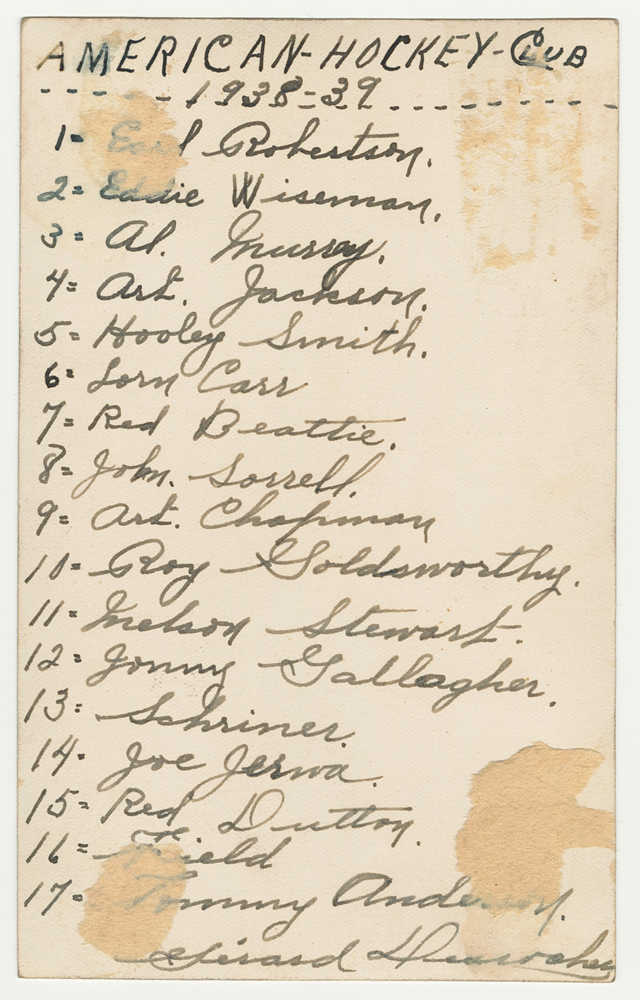 AMERICAN-HOCKEY-CLUB
----1938=39---------
1= Earl Robertson.
2= Eddie Wiseman.
3= Al. Murray.
4= Art. Jackson.
5= Hooley Smith.
6= Lorn Carr
7= Red Beattie.
8= John. Sorrell.
9= Art. Chapman
10= Roy Goldsworthy.
11= Nelson Stewart.
12= Jonny Gallagher.
13= Schriner.
14= Joe Jerwa.
15= Red Dutton.
16= Field
17= Tommy Anderson.
Gérard